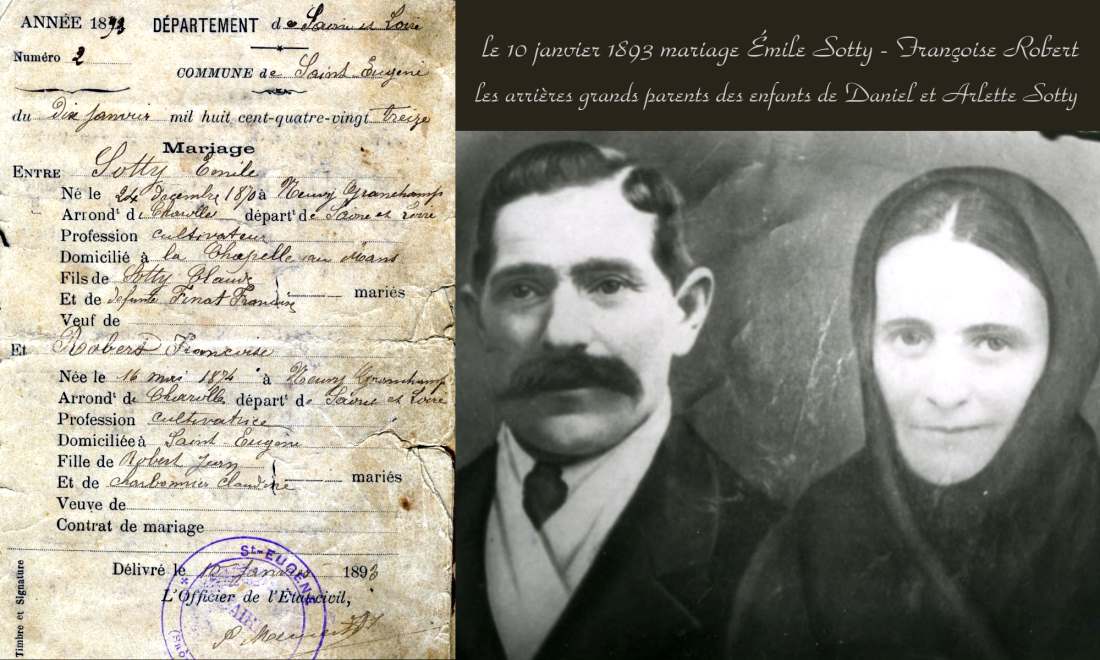 ANNÉE 1893 DÉPARTEMENT de Saône et Loire
Numéro 2
COMMUNE de Saint Eugène
du Dix janvier mil huit cent-quatre-vingt treize
Mariage
ENTRE Sotty Emile
Né le 24 Decembre 1870 à Neuvy Granchamp
Arrondt de Charolles départt de Saone et Loire
Profession cultivateur
Domicilié à la Chapelle au Mans
Fils de Sotty Claude
Et de défunte Finat Francoise mariés
Veuf de
Et Robert Francoise
Née le 16 mai 1874 à Neuvy Granchamp
Arrondt de Charolles départt de Saone et Loire
Profession cultivatrice
Domiciliée à Saint Eugène
Fille de Robert Jean
Et de Charbonnier Claudine mariés
Veuve de
Contrat de mariage
Délivré le 10 Janvier 1893
L'Officier de l'État civil,
Timbre et Signature
St-EUGÈNE
le 10 janvier 1893 mariage Émile Sotty - Françoise Robert
les arrières grands parents des enfants de Daniel et Arlette Sotty